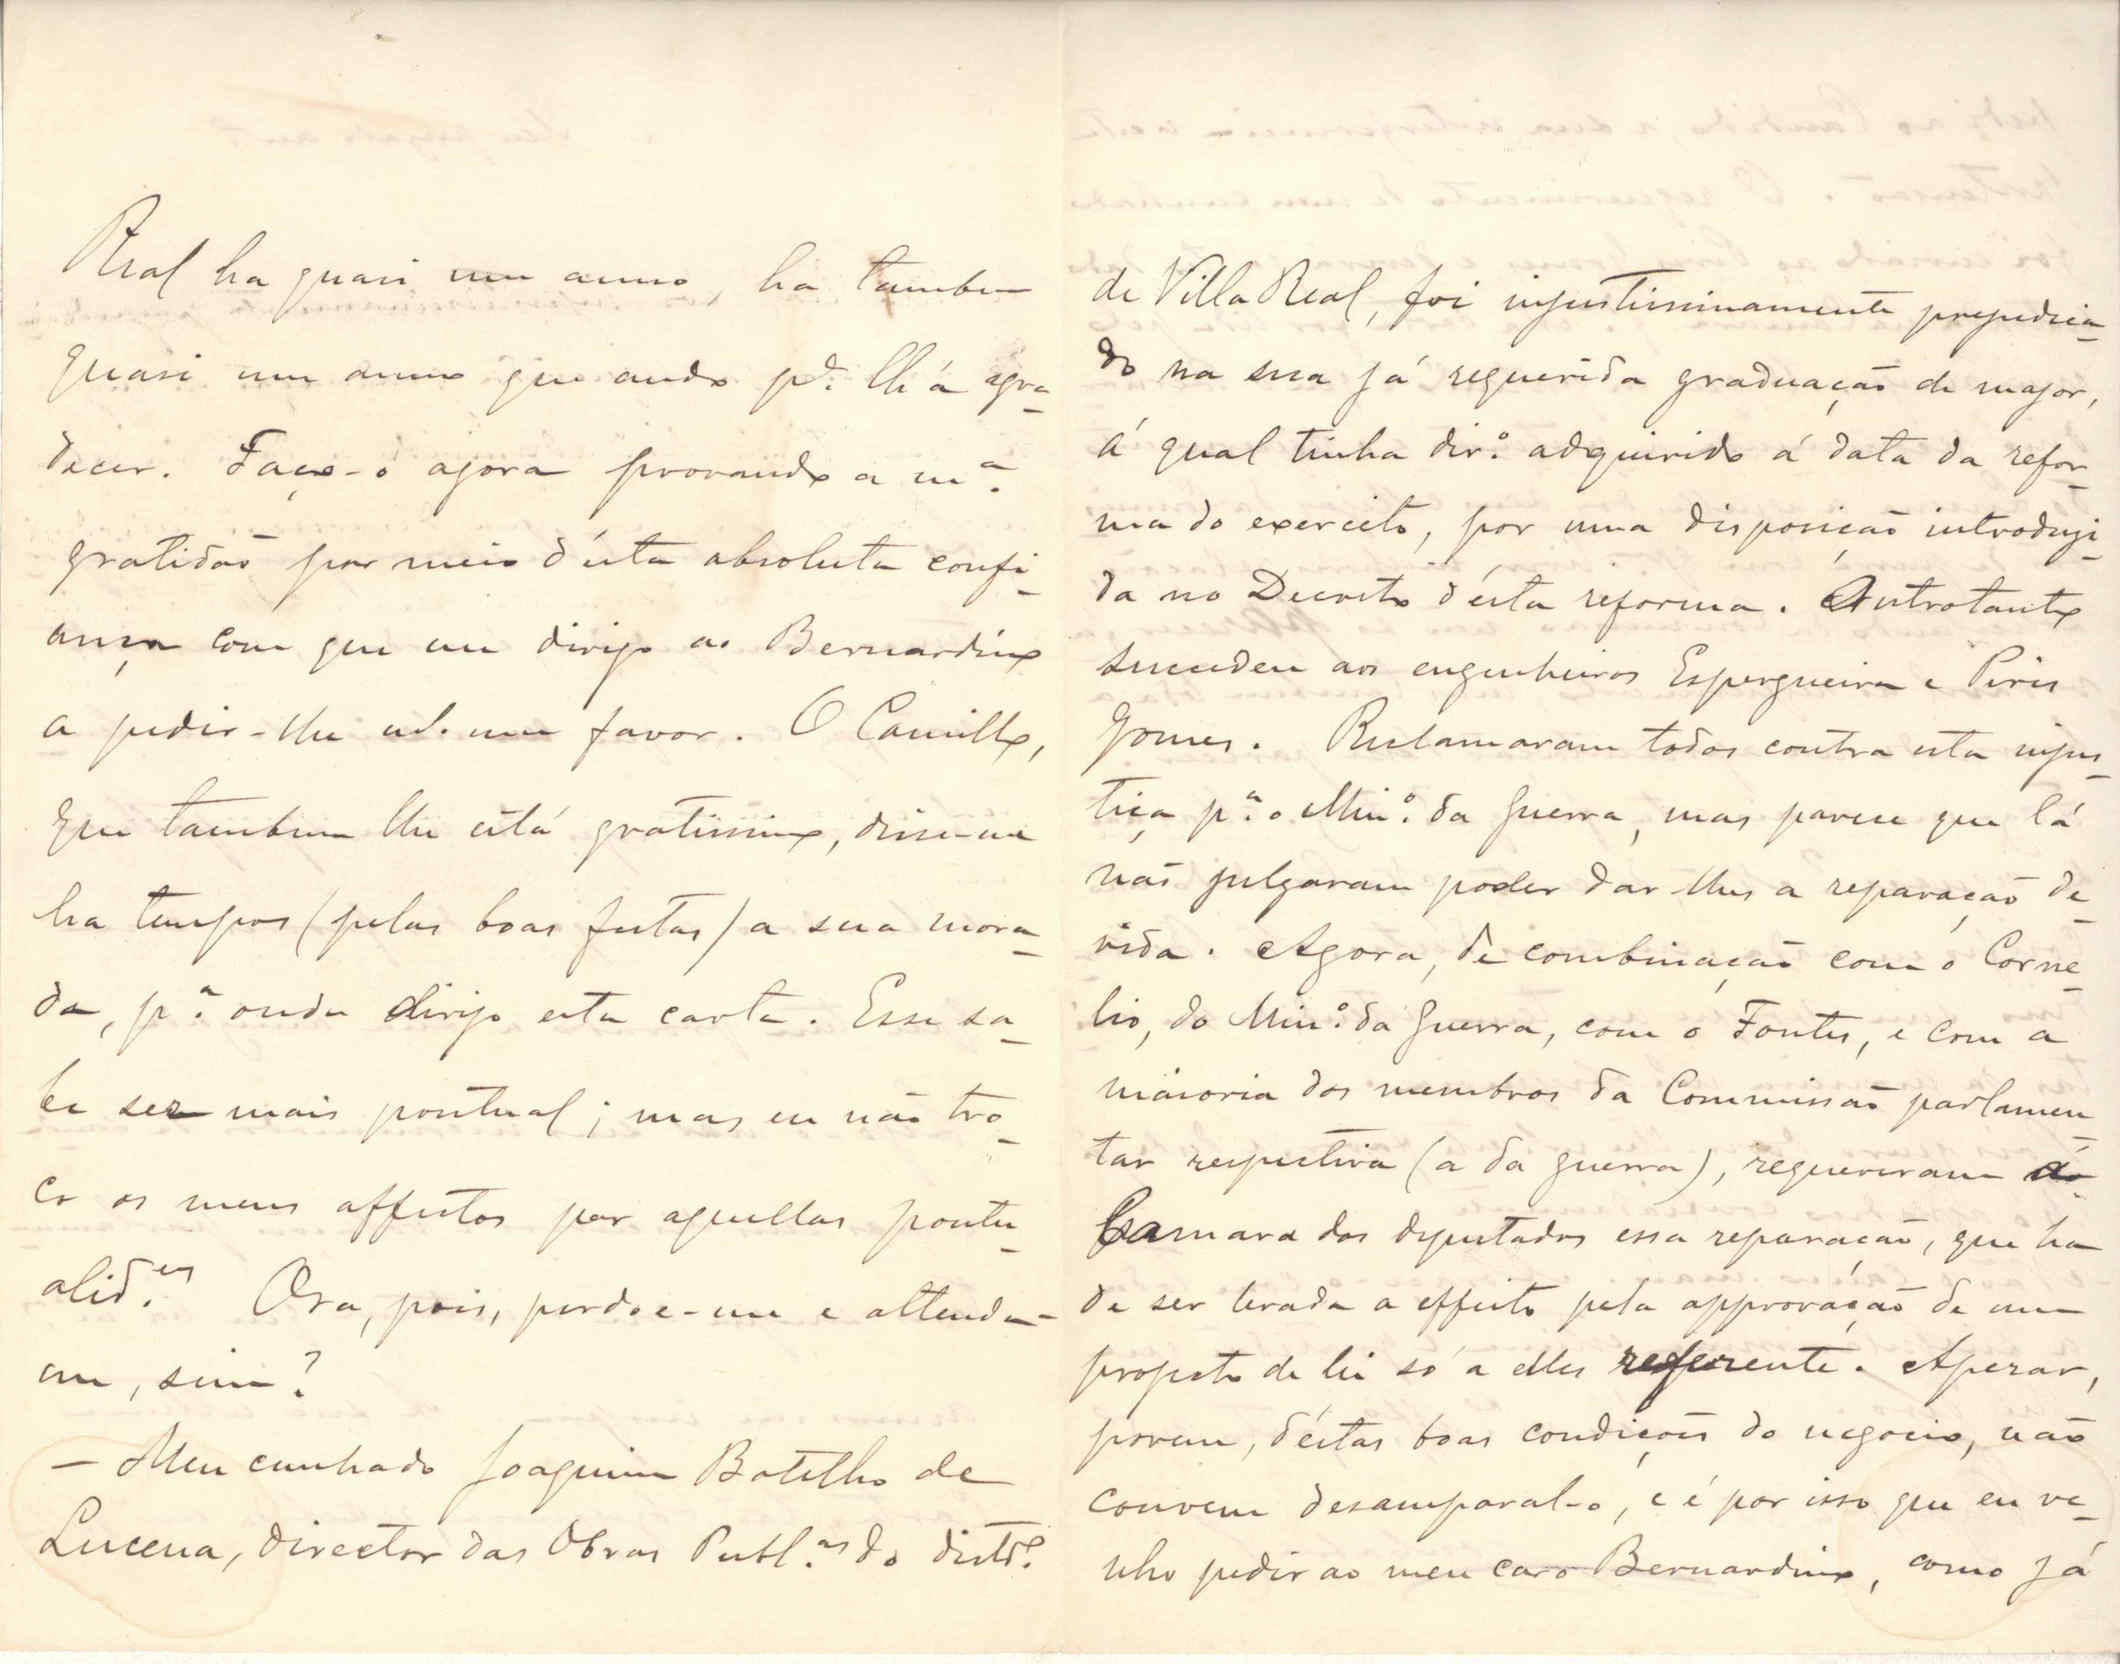 Real ha quasi um anno, ha tambem
quasi um anno que ando p.ª lh'a agra-
decer. Faço-o agora provando a m.ª
gratidão por meio d'esta absoluta confi-
ança com que me dirijo ao Bernardino
a pedir-lhe um favor. O Camillo,
que tambem lhe está gratissimo, disse-me
ha tempos (pelas boas festas) a sua mora-
da, p.ª onde dirijo esta carta. Esse sa-
be ser mais pontual; mas eu não tro-
co os meus affectos por aquellas pontu-
alid.es Ora, pois, perdoe-me e attenda-
me, sim?
— Meu cunhado Joaquim Botelho de
Lucena, director das Obras Publ.as do distr.º
de Villa Real, foi injustissimamente prejudica-
do na sua já requerida graduação de major,
á qual tinha dir.º adquirido á data da refor-
ma do exercito, por uma disposição introduzi-
da no Decreto d'esta reforma. Outrotanto
succedeu aos engenheiros Espergueira e Pires
Gomes. Reclamaram todos contra esta injus-
tiça p.ª o Min.º da Guerra, mas parece que lá
não julgaram poder dar-lhes a reparação de-
vida. Agora, de combinação com o Corne-
lio, do Min.º da Guerra, com o Fontes, e com a
maioria dos membros da Commissão parlamen-
tar respectiva (a da guerra), requereram á
Camara dos deputados essa reparação, que ha
de ser levada a effeito pela approvação de um
projecto de lei só a elles referente. Apezar,
porem, d'estas boas condições do negocio, não
convem desamparal-o, e é por isso que eu ve-
nho pedir ao meu caro Bernardino, como já